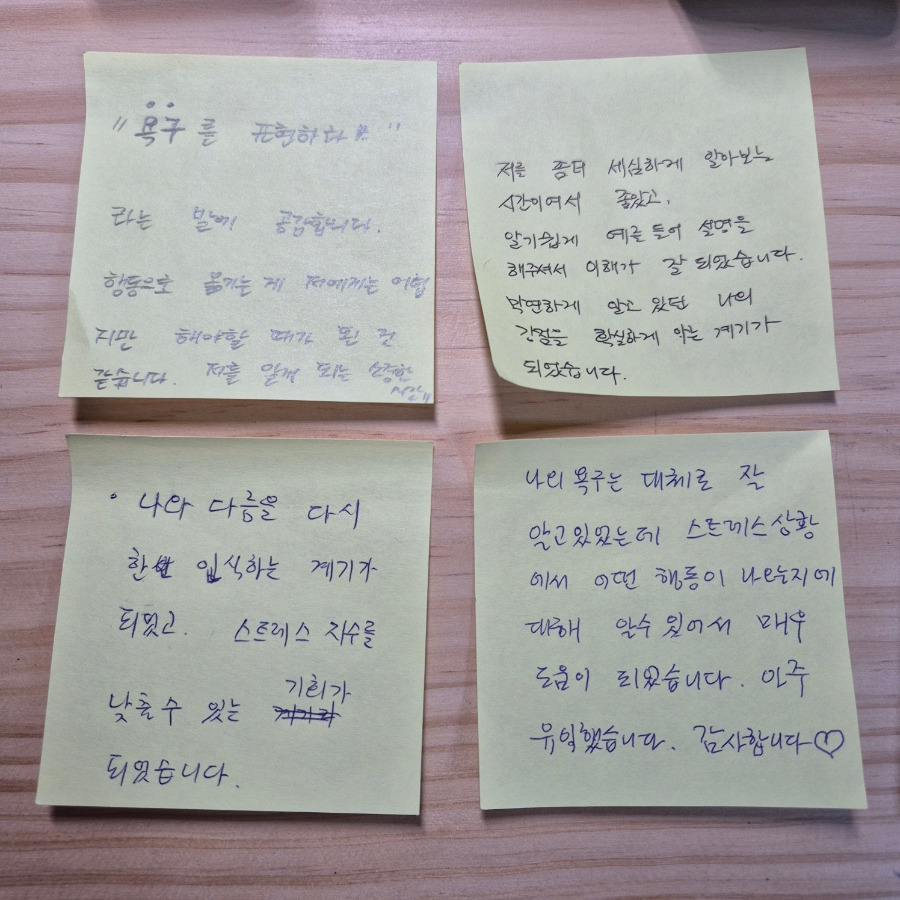 "욕구를 표현하다"
라는 말에 공감합니다.
행동으로 옮기는 게 저에게는 어렵
지만 해야할 때가 된 것
같습니다. 저를 알게 되는 소중한
시간!!
저를 좀더 세심하게 알아보는
시간이여서 좋았고,
알기쉽게 예를 들어 설명을
해주셔서 이해가 잘 되었습니다.
막연하게 알고 있던 나의
강점을 확실하게 아는 계기가
되었습니다.
• 나와 다름을 다시
한번 인식하는 계기가
되었고. 스트레스 지수를
낮출수 있는 기회가
되었습니다.
나의 욕구는 대체로 잘
알고있었는데 스트레스상황
에서 어떤 행동이 나오는지에
대해 알수 있어서 매우
도움이 되었습니다. 아주
유익했습니다. 감사합니다♡